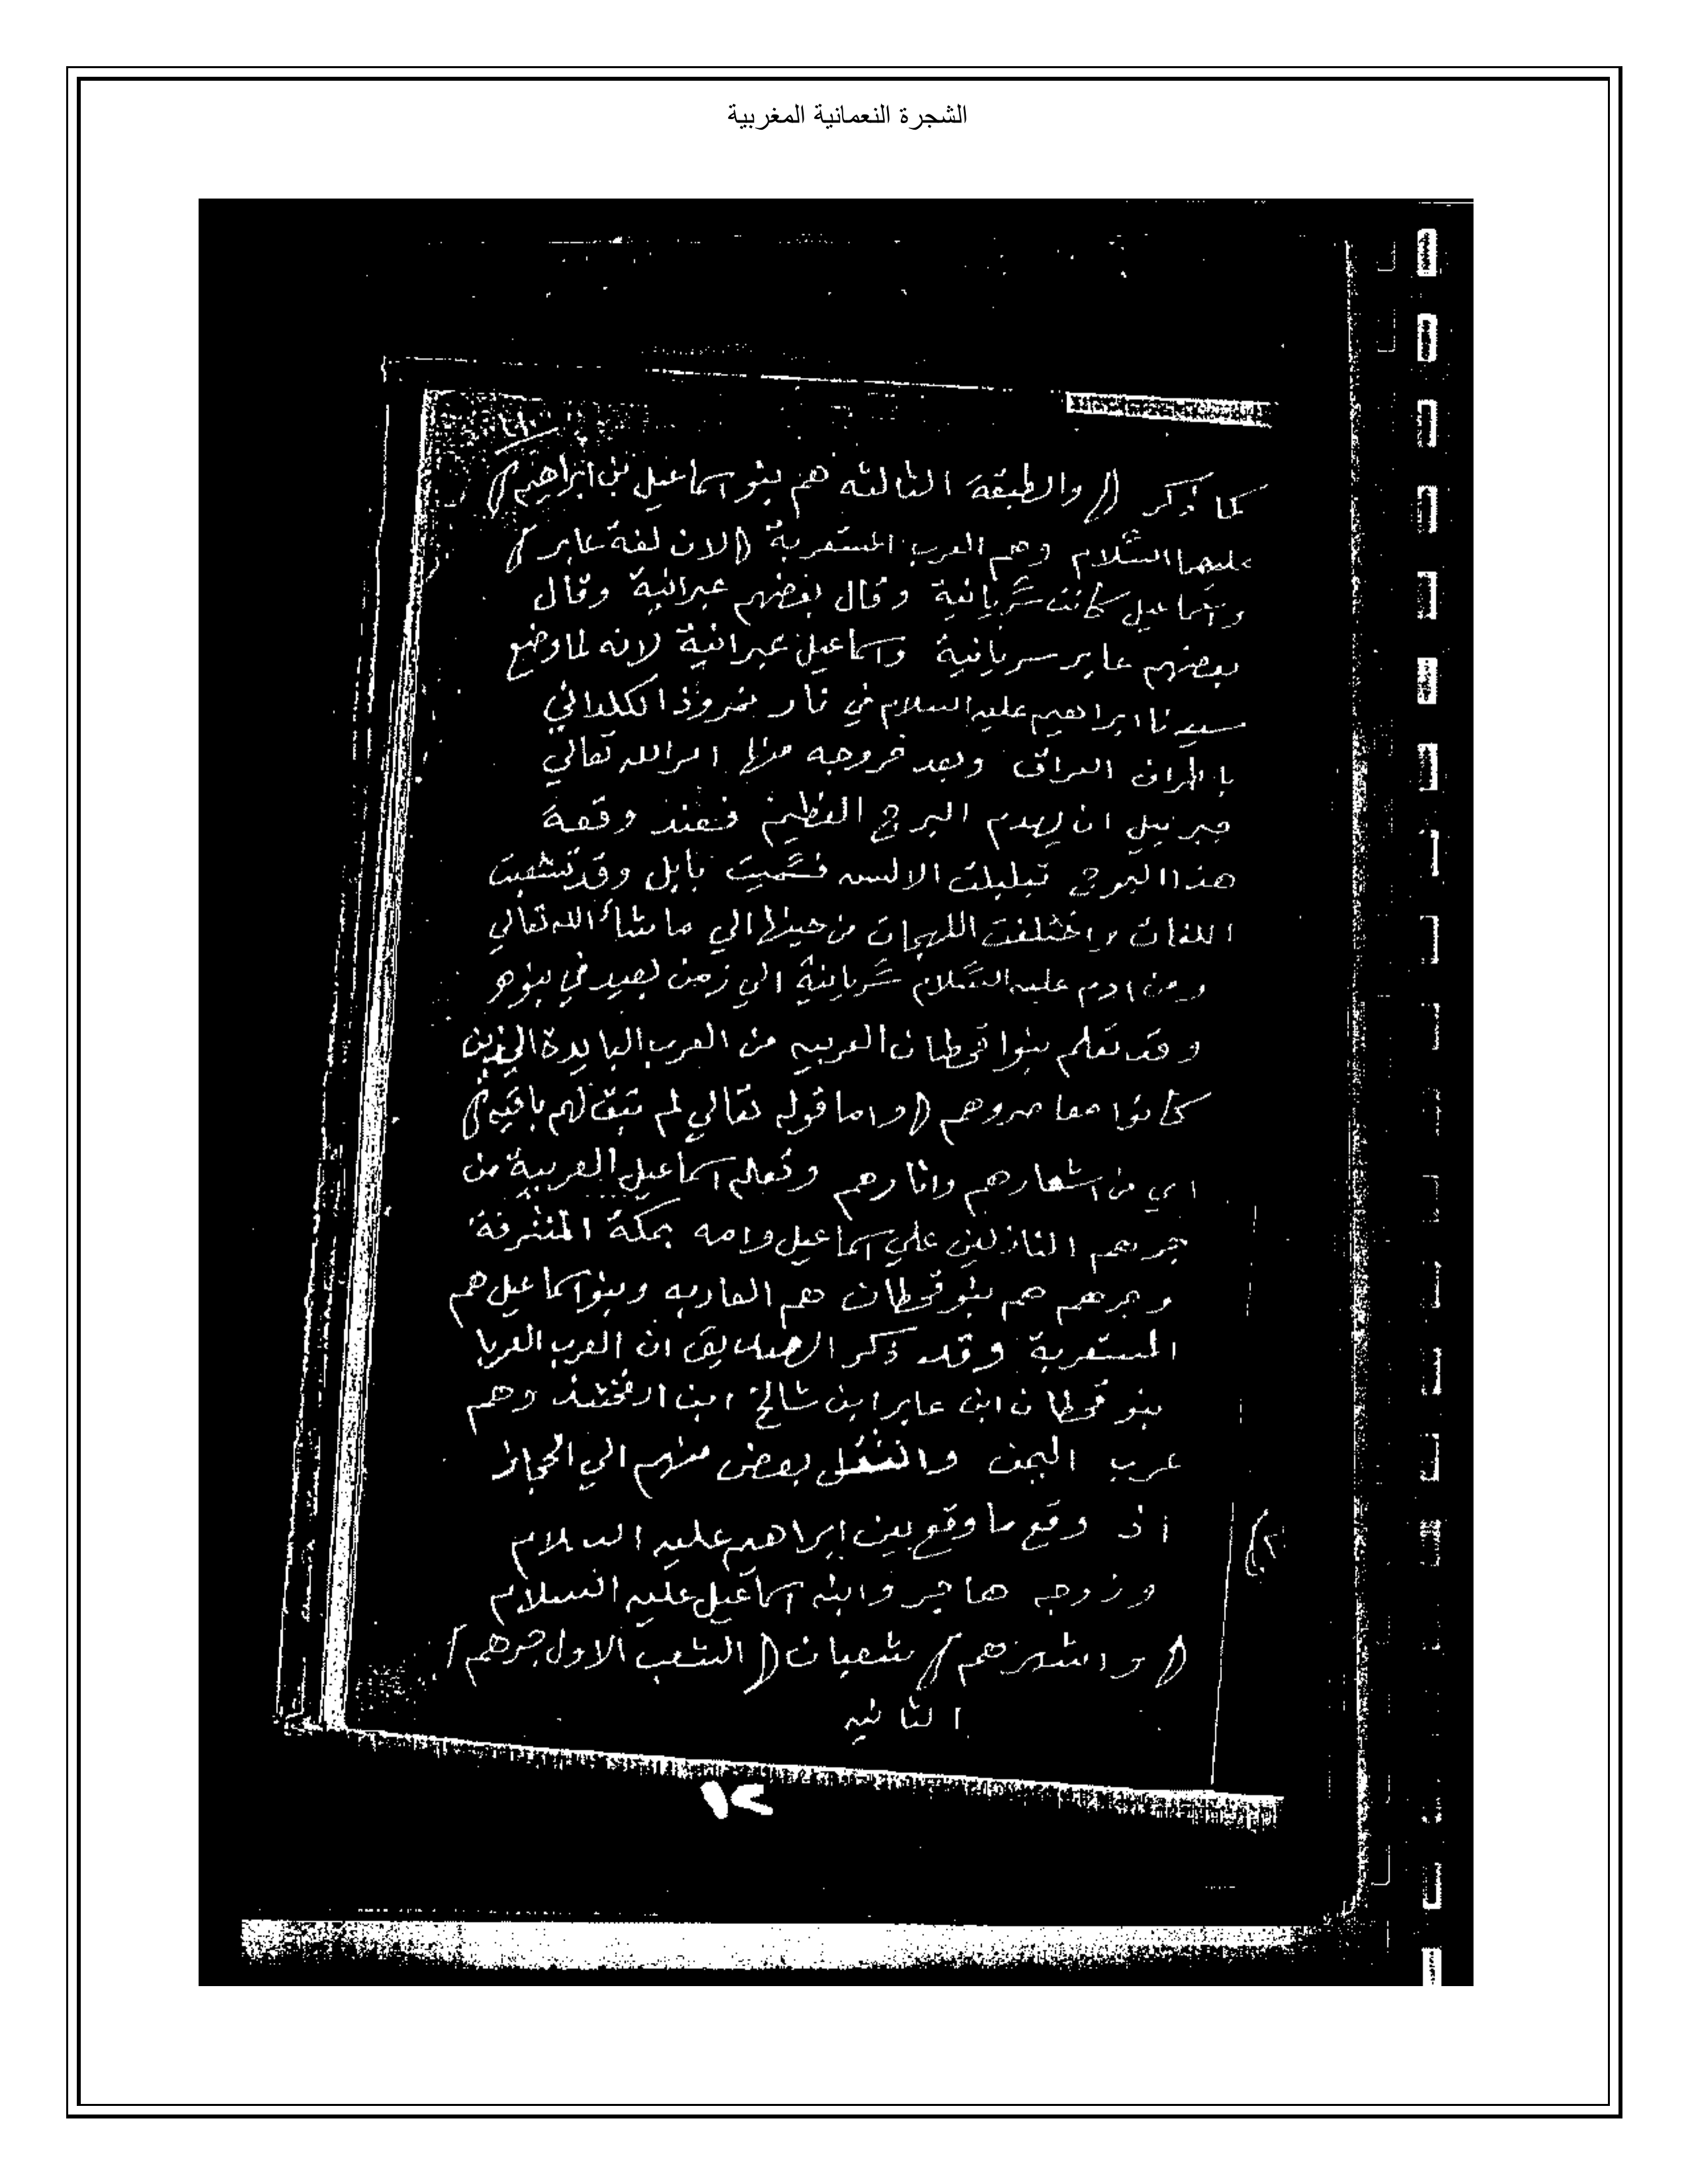 الشجرة النعمانية المغربية
كما ذكر (( والطبقة الثالثه هم بنو اسماعيل بن ابراهيم ))
عليهما السّلام وهم العرب المستعربة (( لان لغة عابر ))
واسماعيل كانت سَّريانية وقال بعضهم عبرانية وقال
بعضهم عابر سريانية واسماعيل عبرانية لانه لما وضع
سيدنا ابراهيم عليه السلام في نار نمروذ الكلداني
باطراف العراق وبعد خروجه منها امر الله تعالي
جبرئيل ان يهدم البرج العظيم فعند وقعة
هذا البرج تبلبلت الالسن فسُميت بابل وقد تشعبت
اللغات واختلفت اللهجات من حينها الي ما شاء الله تعالي
ومن ادم عليه السَّلام سَّريانية الي زمن بعيد في بنوه
وقد تعلم بنوا قحطان العربيه من العرب البايدة الذين
كانوا معاصروهم (( واما قوله تعالي لم تبق لهم باقيه ))
اي من اشعارهم واثارهم وتعلم اسماعيل العربية من
جرهم النازلين علي اسماعيل وامه بمكة المشرفة
وجرهم هم بنو قحطان هم العاربه وبنو اسماعيل هم
المستعربة وقد ذكر ان العرب العربا
بنو قحطان ابن عابر ابن شالخ ابن ارفخشد وهم
عرب اليمن وانتقل بعض منهم الي الحجاز
اذ وقع ما وقع بين ابراهيم عليه السلام
وزوجه هاجر وابنه اسماعيل عليه السلام
(( واشهرهم )) شعبان (( الشعب الاول جرهم ))
الثانيه
١٢